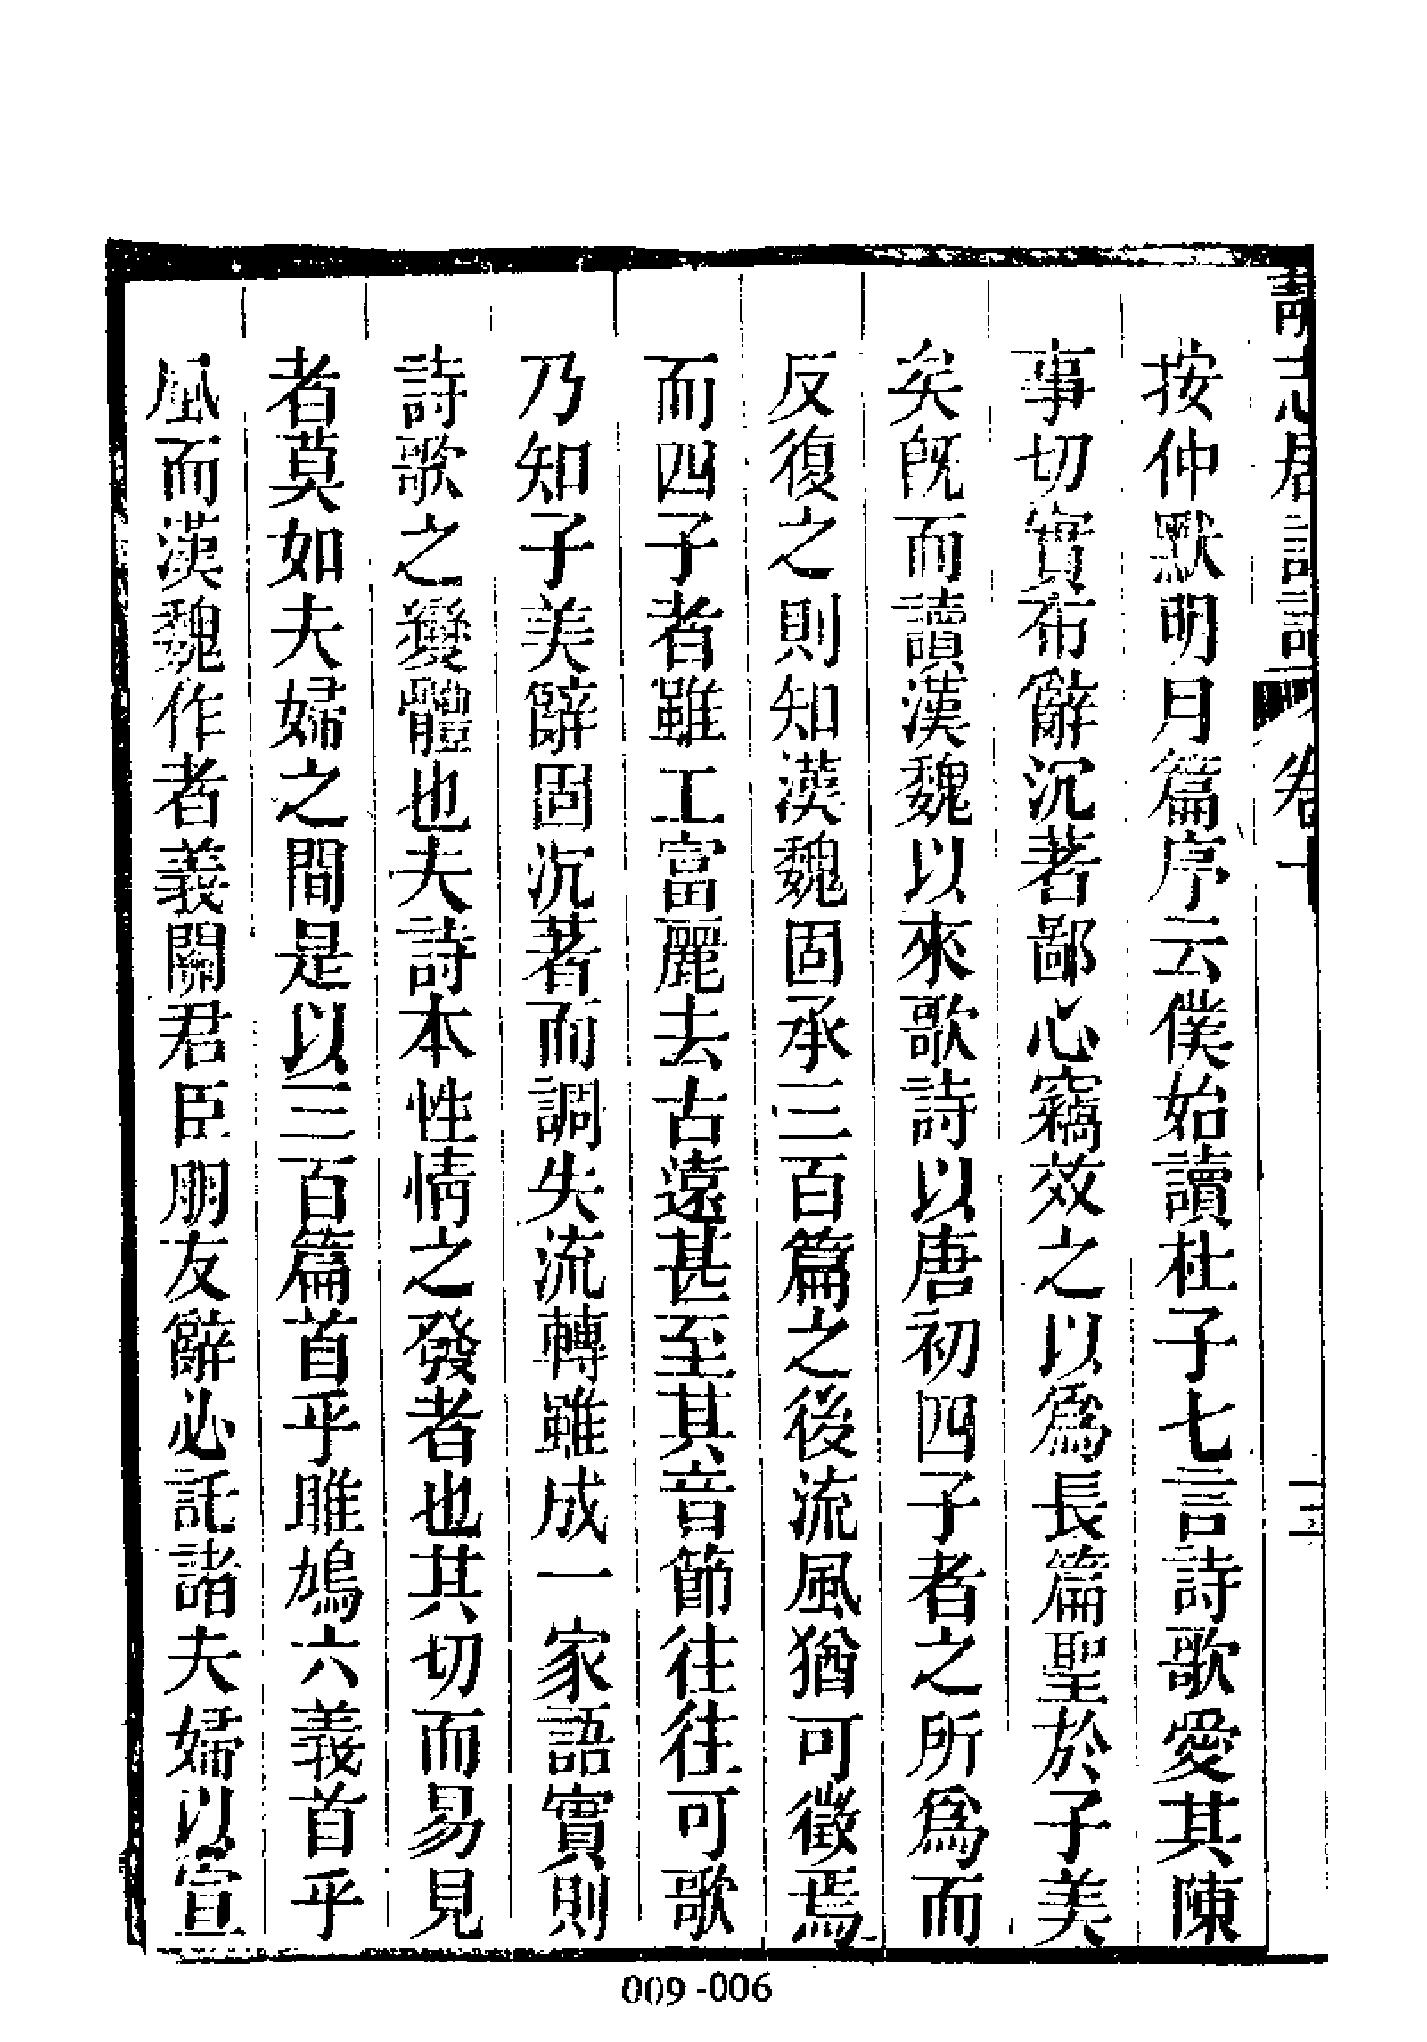 靜志居詩話 卷十
十三
按仲默明月篇序云僕始讀杜子七言詩歌愛其陳
事切實布辭沉著鄙心竊效之以爲長篇聖於子美
矣旣而讀漢魏以來歌詩以唐初四子者之所爲而
反復之則知漢魏固承三百篇之後流風猶可徵焉
而四子者雖工富麗去古遠甚至其音節往往可歌
乃知子美辭固沉著而調失流轉雖成一家語實則
詩歌之變體也夫詩本性情之發者也其切而易見
者莫如夫婦之間是以三百篇首乎雎鳩六義首乎
風而漢魏作者義關君臣朋友辭必託諸夫婦以宣
009-006